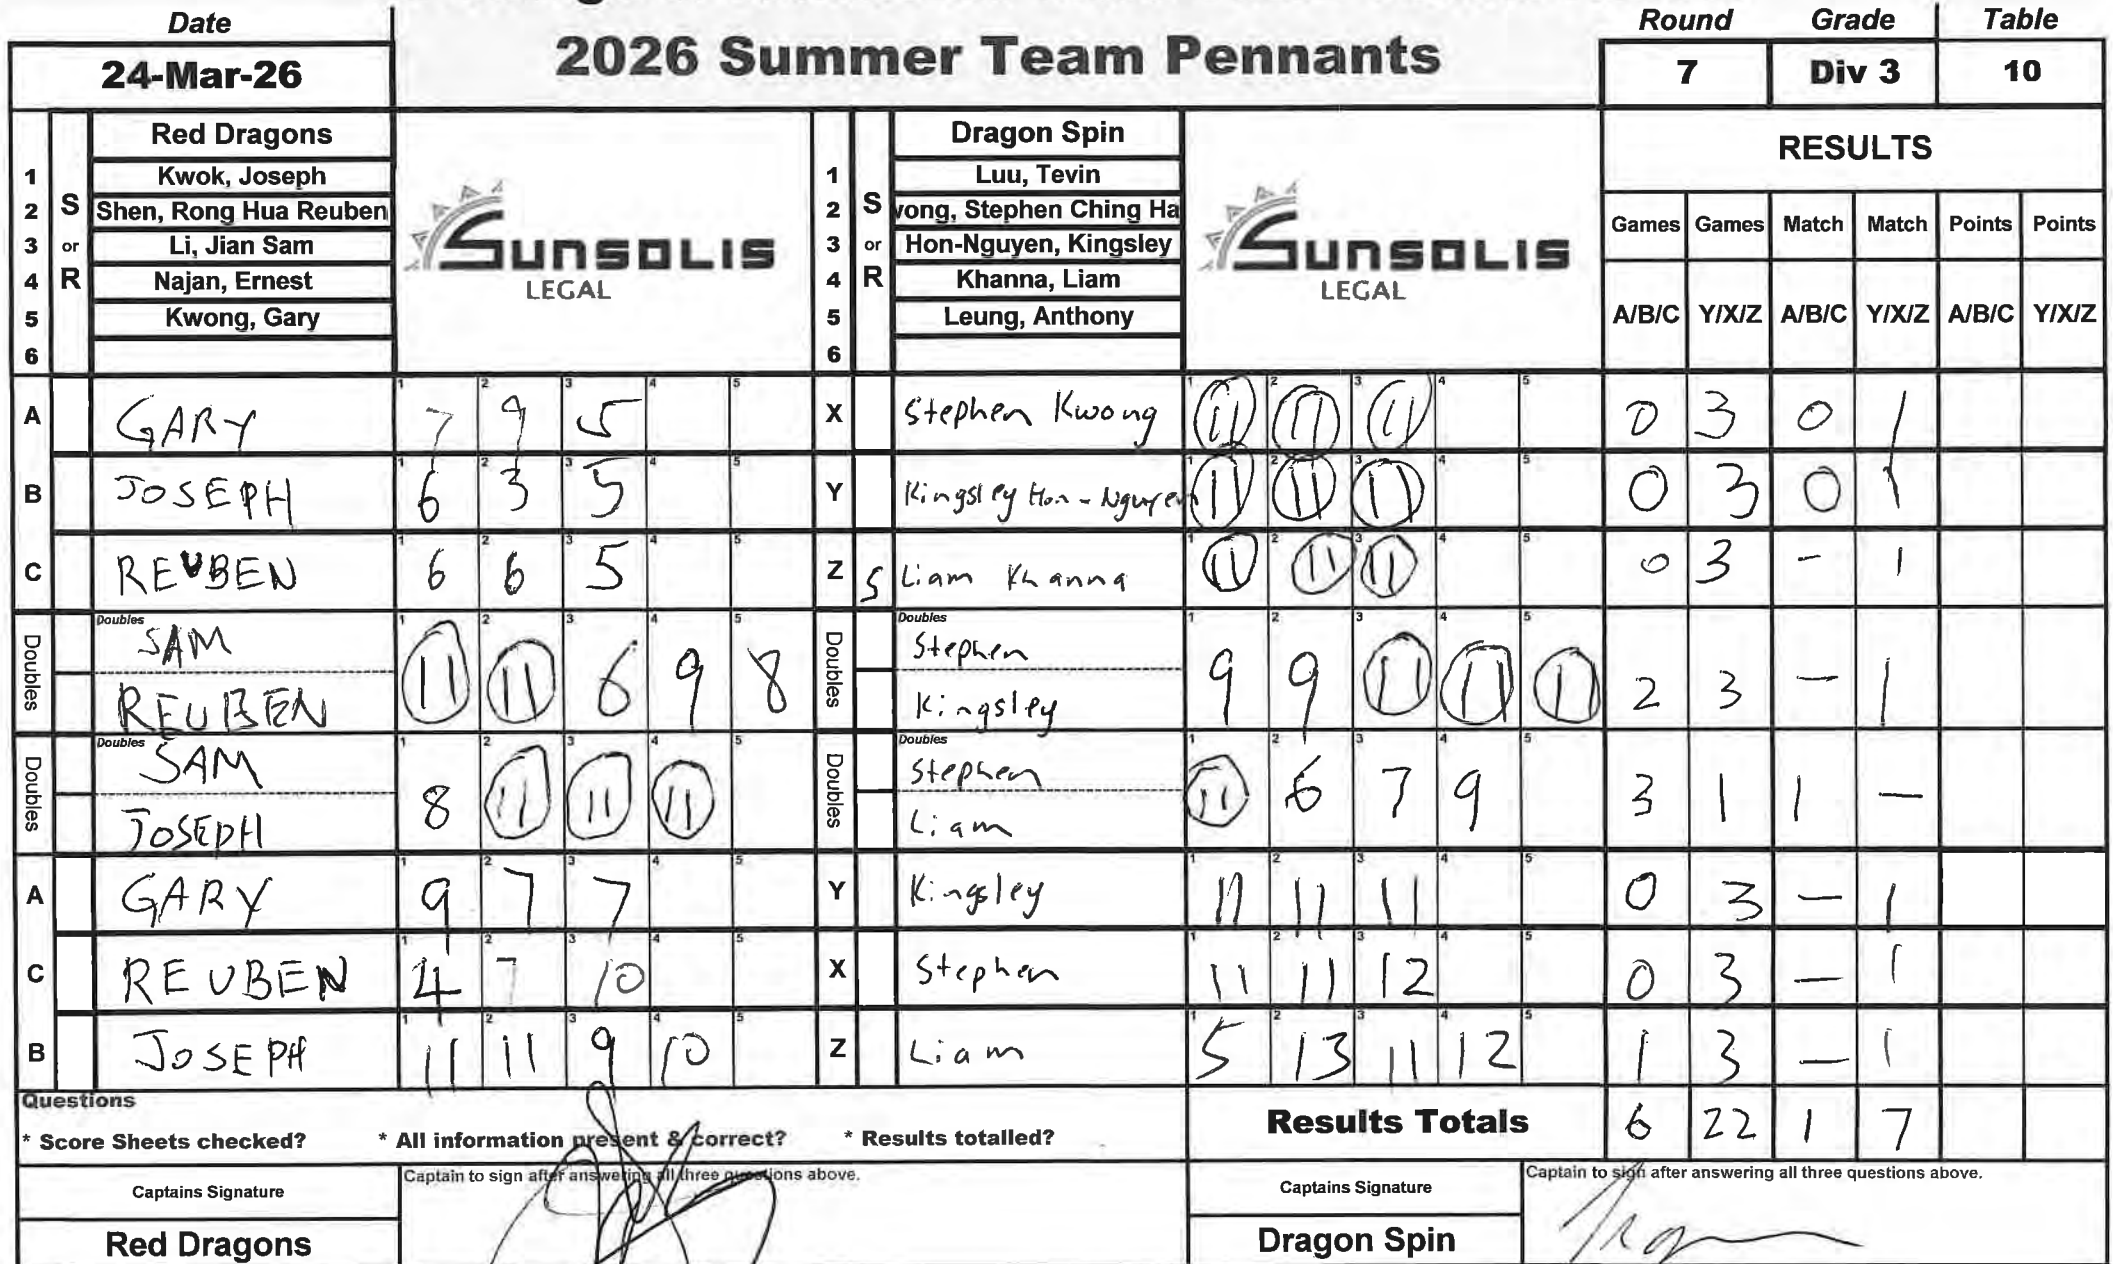 Date
24-Mar-26
2026 Summer Team Pennants
Round Grade Table
7 Div 3 10
S or R
Red Dragons
1 Kwok, Joseph
2 Shen, Rong Hua Reuben
3 Li, Jian Sam
4 Najan, Ernest
5 Kwong, Gary
6
SUNSOLIS
LEGAL
S or R
Dragon Spin
1 Luu, Tevin
2 wong, Stephen Ching Ha
3 Hon-Nguyen, Kingsley
4 Khanna, Liam
5 Leung, Anthony
6
SUNSOLIS
LEGAL
RESULTS
Games Games Match Match Points Points
A/B/C Y/X/Z A/B/C Y/X/Z A/B/C Y/X/Z
A GARY 1 7 2 9 3 5 4 5 X Stephen Kwong 1 11 2 11 3 11 4 5 0 3 0 1
B JOSEPH 1 6 2 3 3 5 4 5 Y Kingsley Hon-Nguyen 1 11 2 11 3 11 4 5 0 3 0 1
C REUBEN 1 6 2 6 3 5 4 5 Z S Liam Khanna 1 11 2 11 3 11 4 5 0 3 - 1
Doubles Doubles SAM REUBEN 1 11 2 11 3 6 4 9 5 8 Doubles Doubles Stephen Kingsley 1 9 2 9 3 11 4 11 5 11 2 3 - 1
Doubles Doubles SAM JOSEPH 1 8 2 11 3 11 4 11 5 Doubles Doubles Stephen Liam 1 11 2 6 3 7 4 9 5 3 1 1 -
A GARY 1 9 2 7 3 7 4 5 Y Kingsley 1 11 2 11 3 11 4 5 0 3 - 1
C REUBEN 1 4 2 7 3 10 4 5 X Stephen 1 11 2 11 3 12 4 5 0 3 - 1
B JOSEPH 1 11 2 11 3 9 4 10 5 Z Liam 1 5 2 13 3 11 4 12 5 1 3 - 1
Questions
* Score Sheets checked? * All information present & correct? * Results totalled?
Results Totals 6 22 1 7
Captains Signature
Captain to sign after answering all three questions above.
Captains Signature
Captain to sign after answering all three questions above.
Red Dragons
Dragon Spin